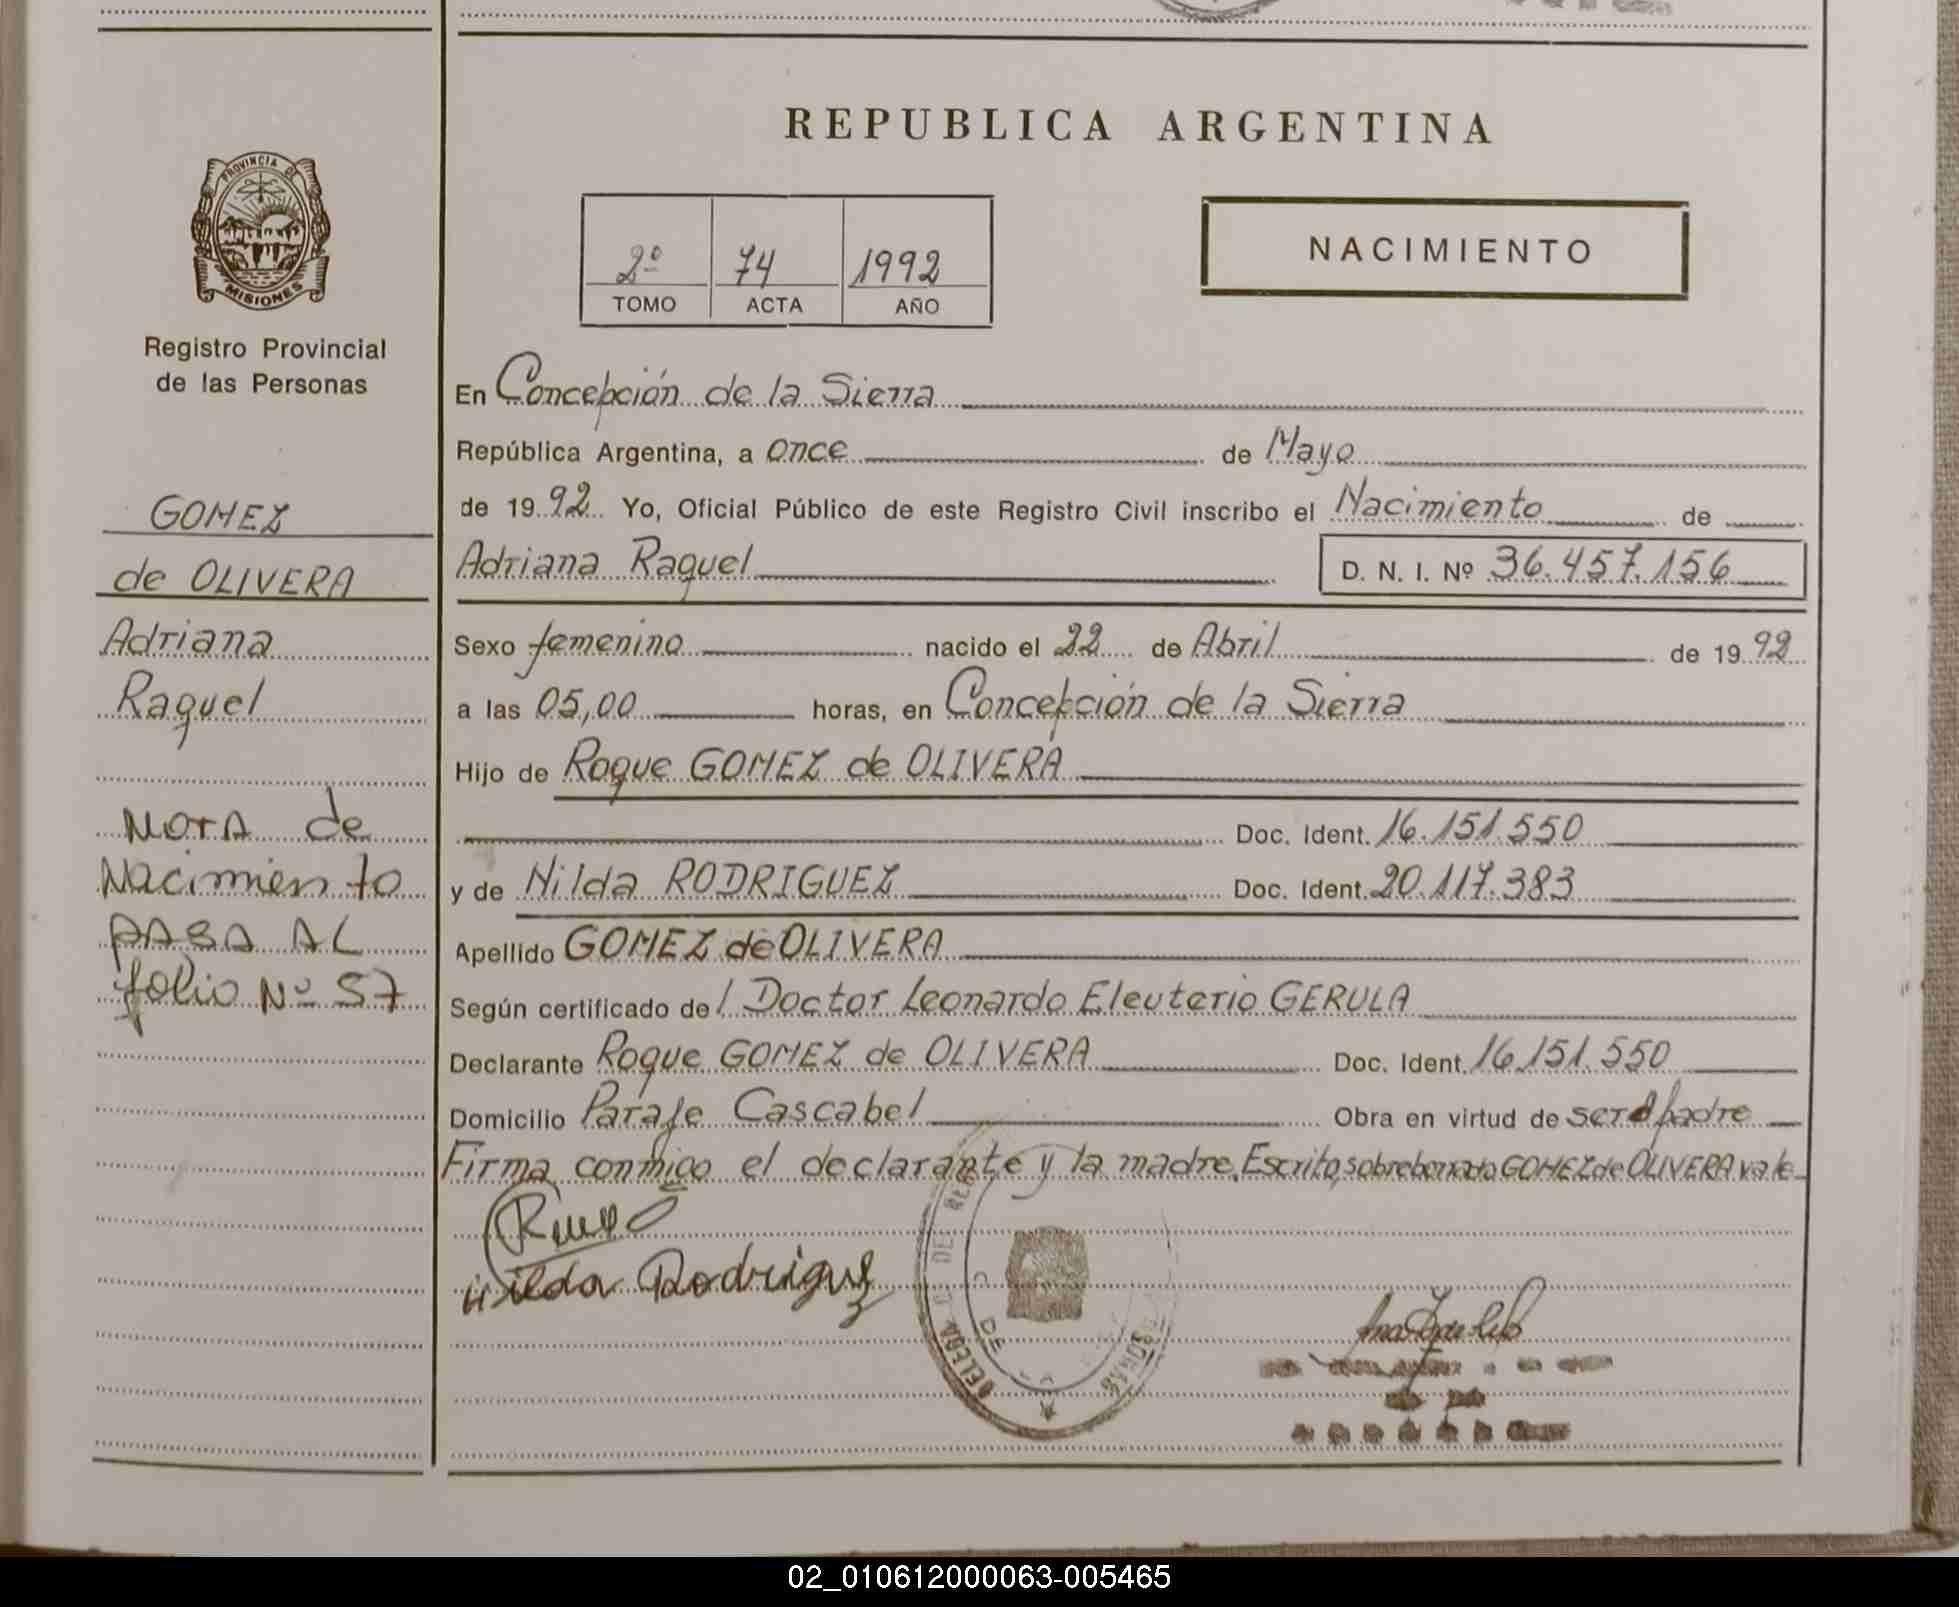 REPUBLICA ARGENTINA
PROVINCIA DE
MISIONES
Registro Provincial
de las Personas
2º 74 1992
TOMO ACTA AÑO
NACIMIENTO
GOMEZ
de OLIVERA
Adriana
Raquel
NOTA de
Nacimiento
PASA AL
folio Nº 57
En Concepción de la Sierra
República Argentina, a once de Mayo
de 1992 Yo, Oficial Público de este Registro Civil inscribo el Nacimiento de
Adriana Raquel D. N. I. Nº 36.457.156
Sexo femenino nacido el 22 de Abril de 1992
a las 05,00 horas, en Concepción de la Sierra
Hijo de Roque GOMEZ de OLIVERA
Doc. Ident. 16.151.550
y de Nilda RODRIGUEZ Doc. Ident. 20.117.383
Apellido GOMEZ de OLIVERA
Según certificado del Doctor Leonardo Eleuterio GERULA
Declarante Roque GOMEZ de OLIVERA Doc. Ident. 16.151.550
Domicilio Paraje Cascabel Obra en virtud de ser el padre
Firma conmigo el declarante y la madre. Escrito sobreborrado GOMEZ de OLIVERA vale
Rodriguez
DE
02_010612000063-005465